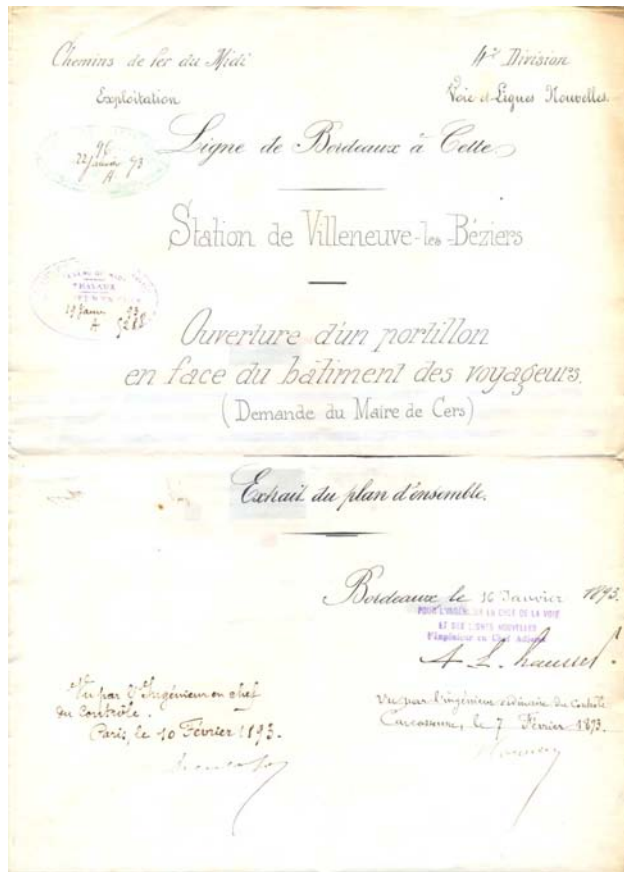 Chemins de Fer du Midi
4e Division
Exploitation
Voie et Lignes Nouvelles.
Ligne de Bordeaux à Cette
96
22 Janvier 93
A
Station de Villeneuve-les-Béziers
19 Janv 93
A
Ouverture d'un portillon
en face du bâtiment des voyageurs.
(Demande du Maire de Cers)
Extrait du plan d'ensemble.
Bordeaux le 16 Janvier 1893.
POUR L'INGÉNIEUR EN CHEF DE LA VOIE
ET DES LIGNES NOUVELLES
l'Ingénieur en Chef Adjoint
Vu par l'Ingénieur en chef
du Contrôle.
Paris, le 10 Février 1893.
Vu par l'ingénieur ordinaire du Contrôle
Carcassonne, le 7 Février 1893.